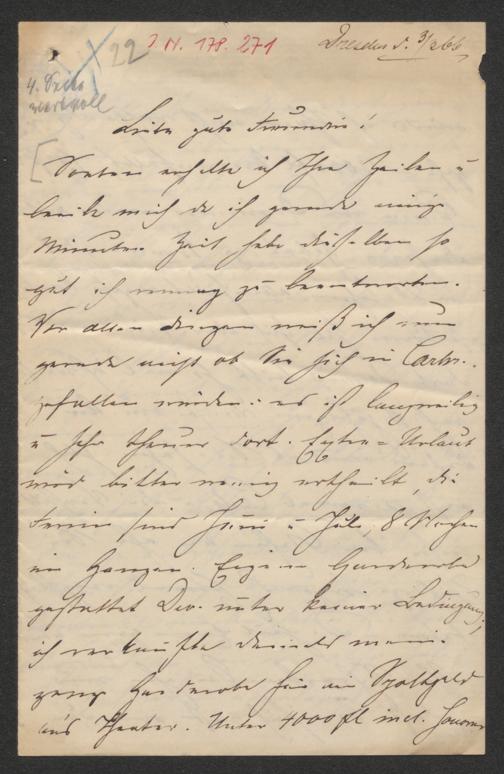 J. N. 178.271
22
Dresden d. 3/3 66
4. Seite
wertvoll
Liebe gute Freundin!
Soeben erhalte ich Ihre Zeilen u
beeile mich da ich gerade einige
Minuten Zeit habe dieselben so
gut ich vermag zu beantworten.
Vor allen Dingen weiß ich nun
gerade nicht ob Sie sich in Carlsr.
gefallen würden: es ist langweilig
u sehr theuer dort. Extra-Urlaub
wird bitter wenig ertheilt, die
Ferien sind Juni u Juli, 8 Wochen
im Ganzen. Eigene Garderobe
gestattet Dev. unter keiner Bedingung,
ich verkaufte damals meine
ganze Garderobe für ein Spottgeld
an's Theater. Unter 4000 fl incl.